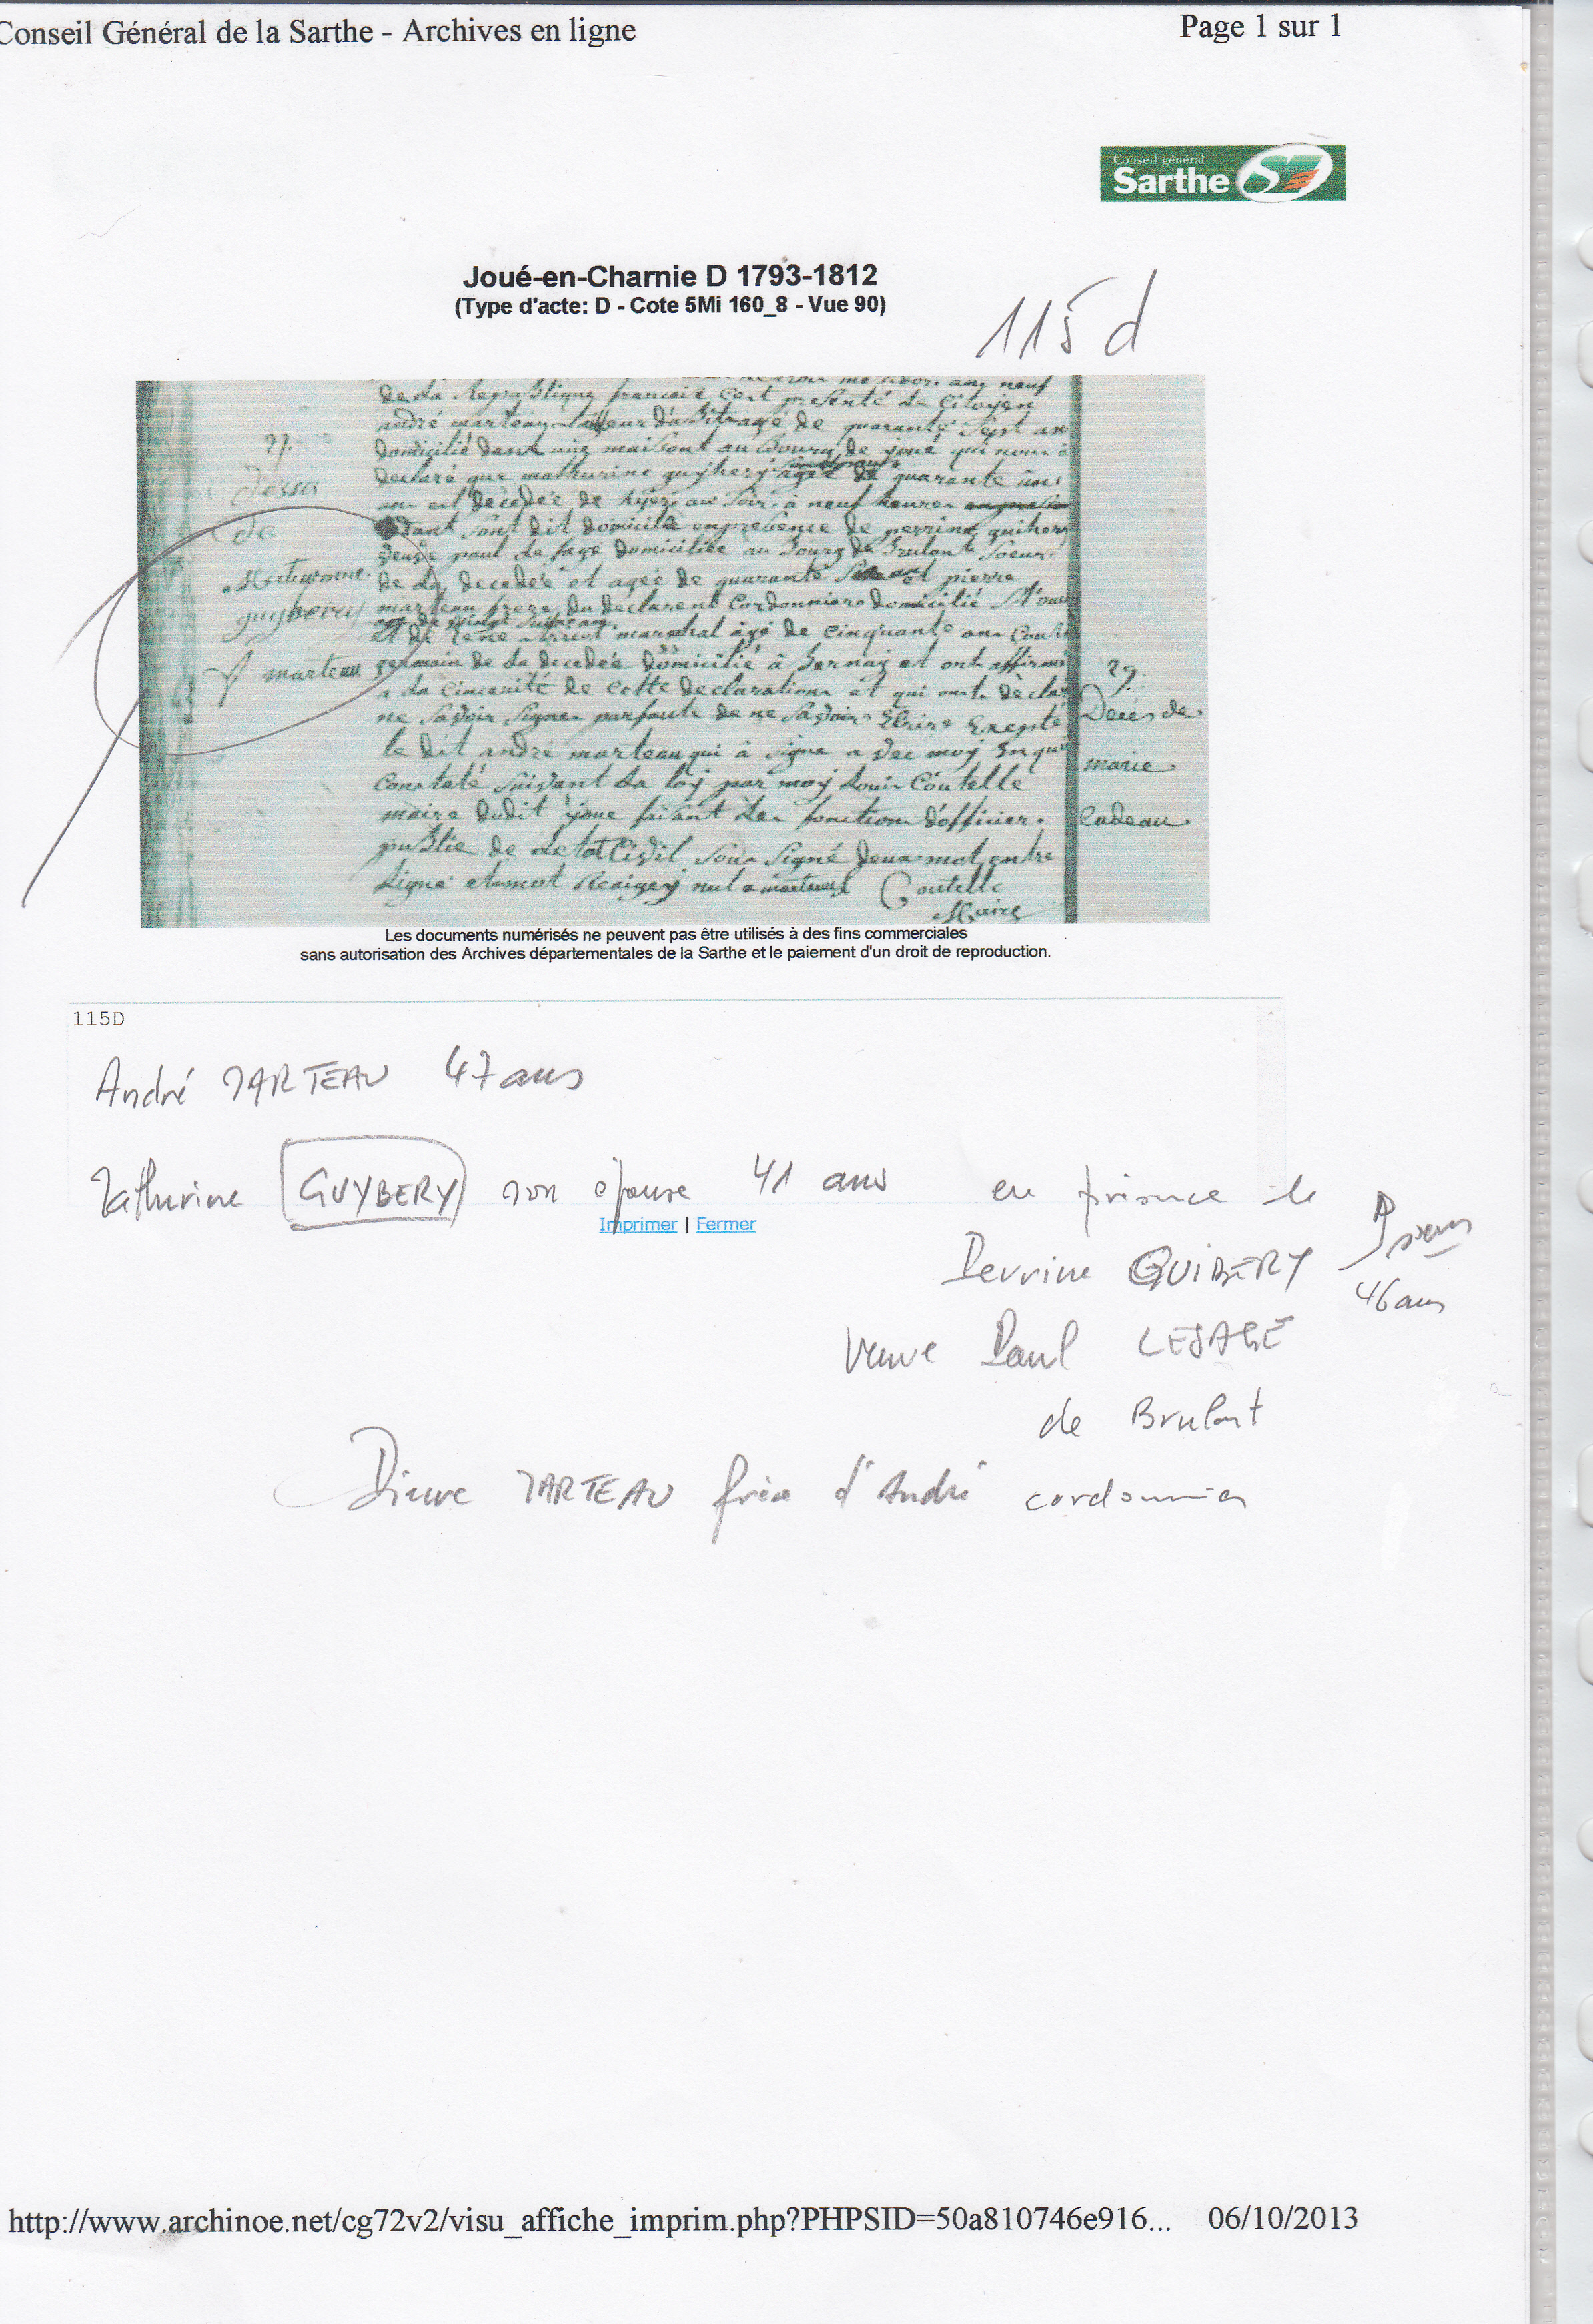 Conseil Général de la Sarthe - Archives en ligne
Page 1 sur 1
Conseil général
Sarthe
Joué-en-Charnie D 1793-1812
(Type d'acte: D - Cote 5Mi 160_8 - Vue 90)
115 d
an neuf
de la Republique francaise Cest presenté le Citoyen
andré marteau tailleur d'abit agé de quarante Sept an
domicilié dans une maisont au Bourg de joué qui nous a
declaré que mathurine guyhery agée de quarante un
an est decedée de hyer au Soir à neuf heures
dant sont dit domicille enpresence de perrine guihery
veuve paul le sage domiciliée au Bourg de Brulont Soeur
de la decedée et agée de quarante et pierre
marteau frere du declarent Cordonnier domicilié
et de rene marechal âgé de Cinquante an Cousin
germain de la decedée domicilié à Bernay et ont affirmé
a la Cincerité de Cette declaration et qui ont déclaré
ne Savoir Signer parfaute de ne Savoir Ecrire Exepté
le dit andré marteau qui à Signé avec moy
Constaté Suivant la loy par moy Louis Coutelle
maire dudit joué faisant les fonction d'officier
publie de Letat Civil Sous Signé deux mot entre
Ligne et un mot nul a marteau Coutelle
Maire
27.
de
guyhery
f marteau
29.
Decés de
marie
Cadeau
Les documents numérisés ne peuvent pas être utilisés à des fins commerciales
sans autorisation des Archives départementales de la Sarthe et le paiement d'un droit de reproduction.
115D
André MARTEAU 47 ans
Mathurine GUYBERY son épouse 41 ans en présence de
Imprimer | Fermer
Perrine GUIBERY sœur
46 ans
Veuve Paul LESAGE
de Brulont
Pierre MARTEAU frère d'André cordonnier
http://www.archinoe.net/cg72v2/visu_affiche_imprim.php?PHPSID=50a810746e916... 06/10/2013